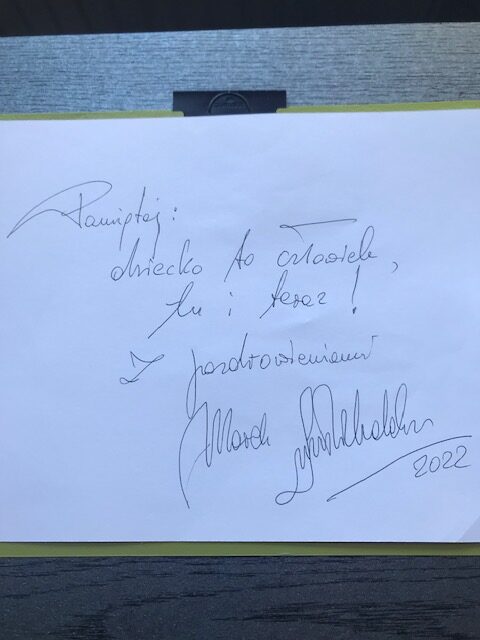 Pamiętaj:
dziecko to człowiek,
tu i teraz!
Z pozdrowieniami
Marek
2022